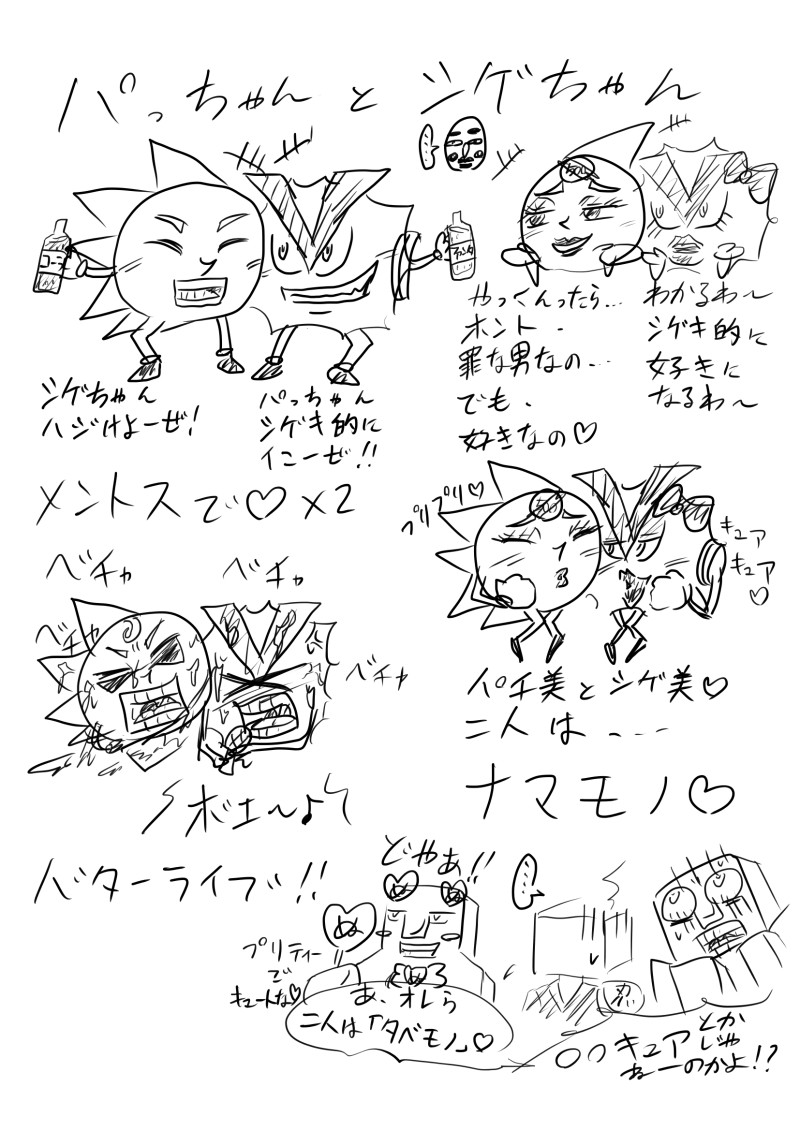 パっちゃんとシゲちゃん
コーラ
ファンタ
シゲちゃん
ハジけよーぜ!
パっちゃん
シゲキ的に
イこーぜ!!
メントスで♡×2
やっくんったら…
ホント・
罪な男なの…
でも・
好きなの♡
わかるわ〜
シゲキ的に
好きに
なるわ〜
プリプリ♡
キュア
キュア♡
パチ美とシゲ美♡
二人は・・・
ナマモノ♡
ベチャ
ベチャ
ベチャ
ベチャ
ボエ〜♪
バターライフッ!!
どやぁ!!
ぬ
ぬ
ぬ
ぬ
プリティー
で
キュートな♡
あ、オレら
二人は「タベモノ」♡
忍
○○キュアとか
じゃ
ねーのかよ!?